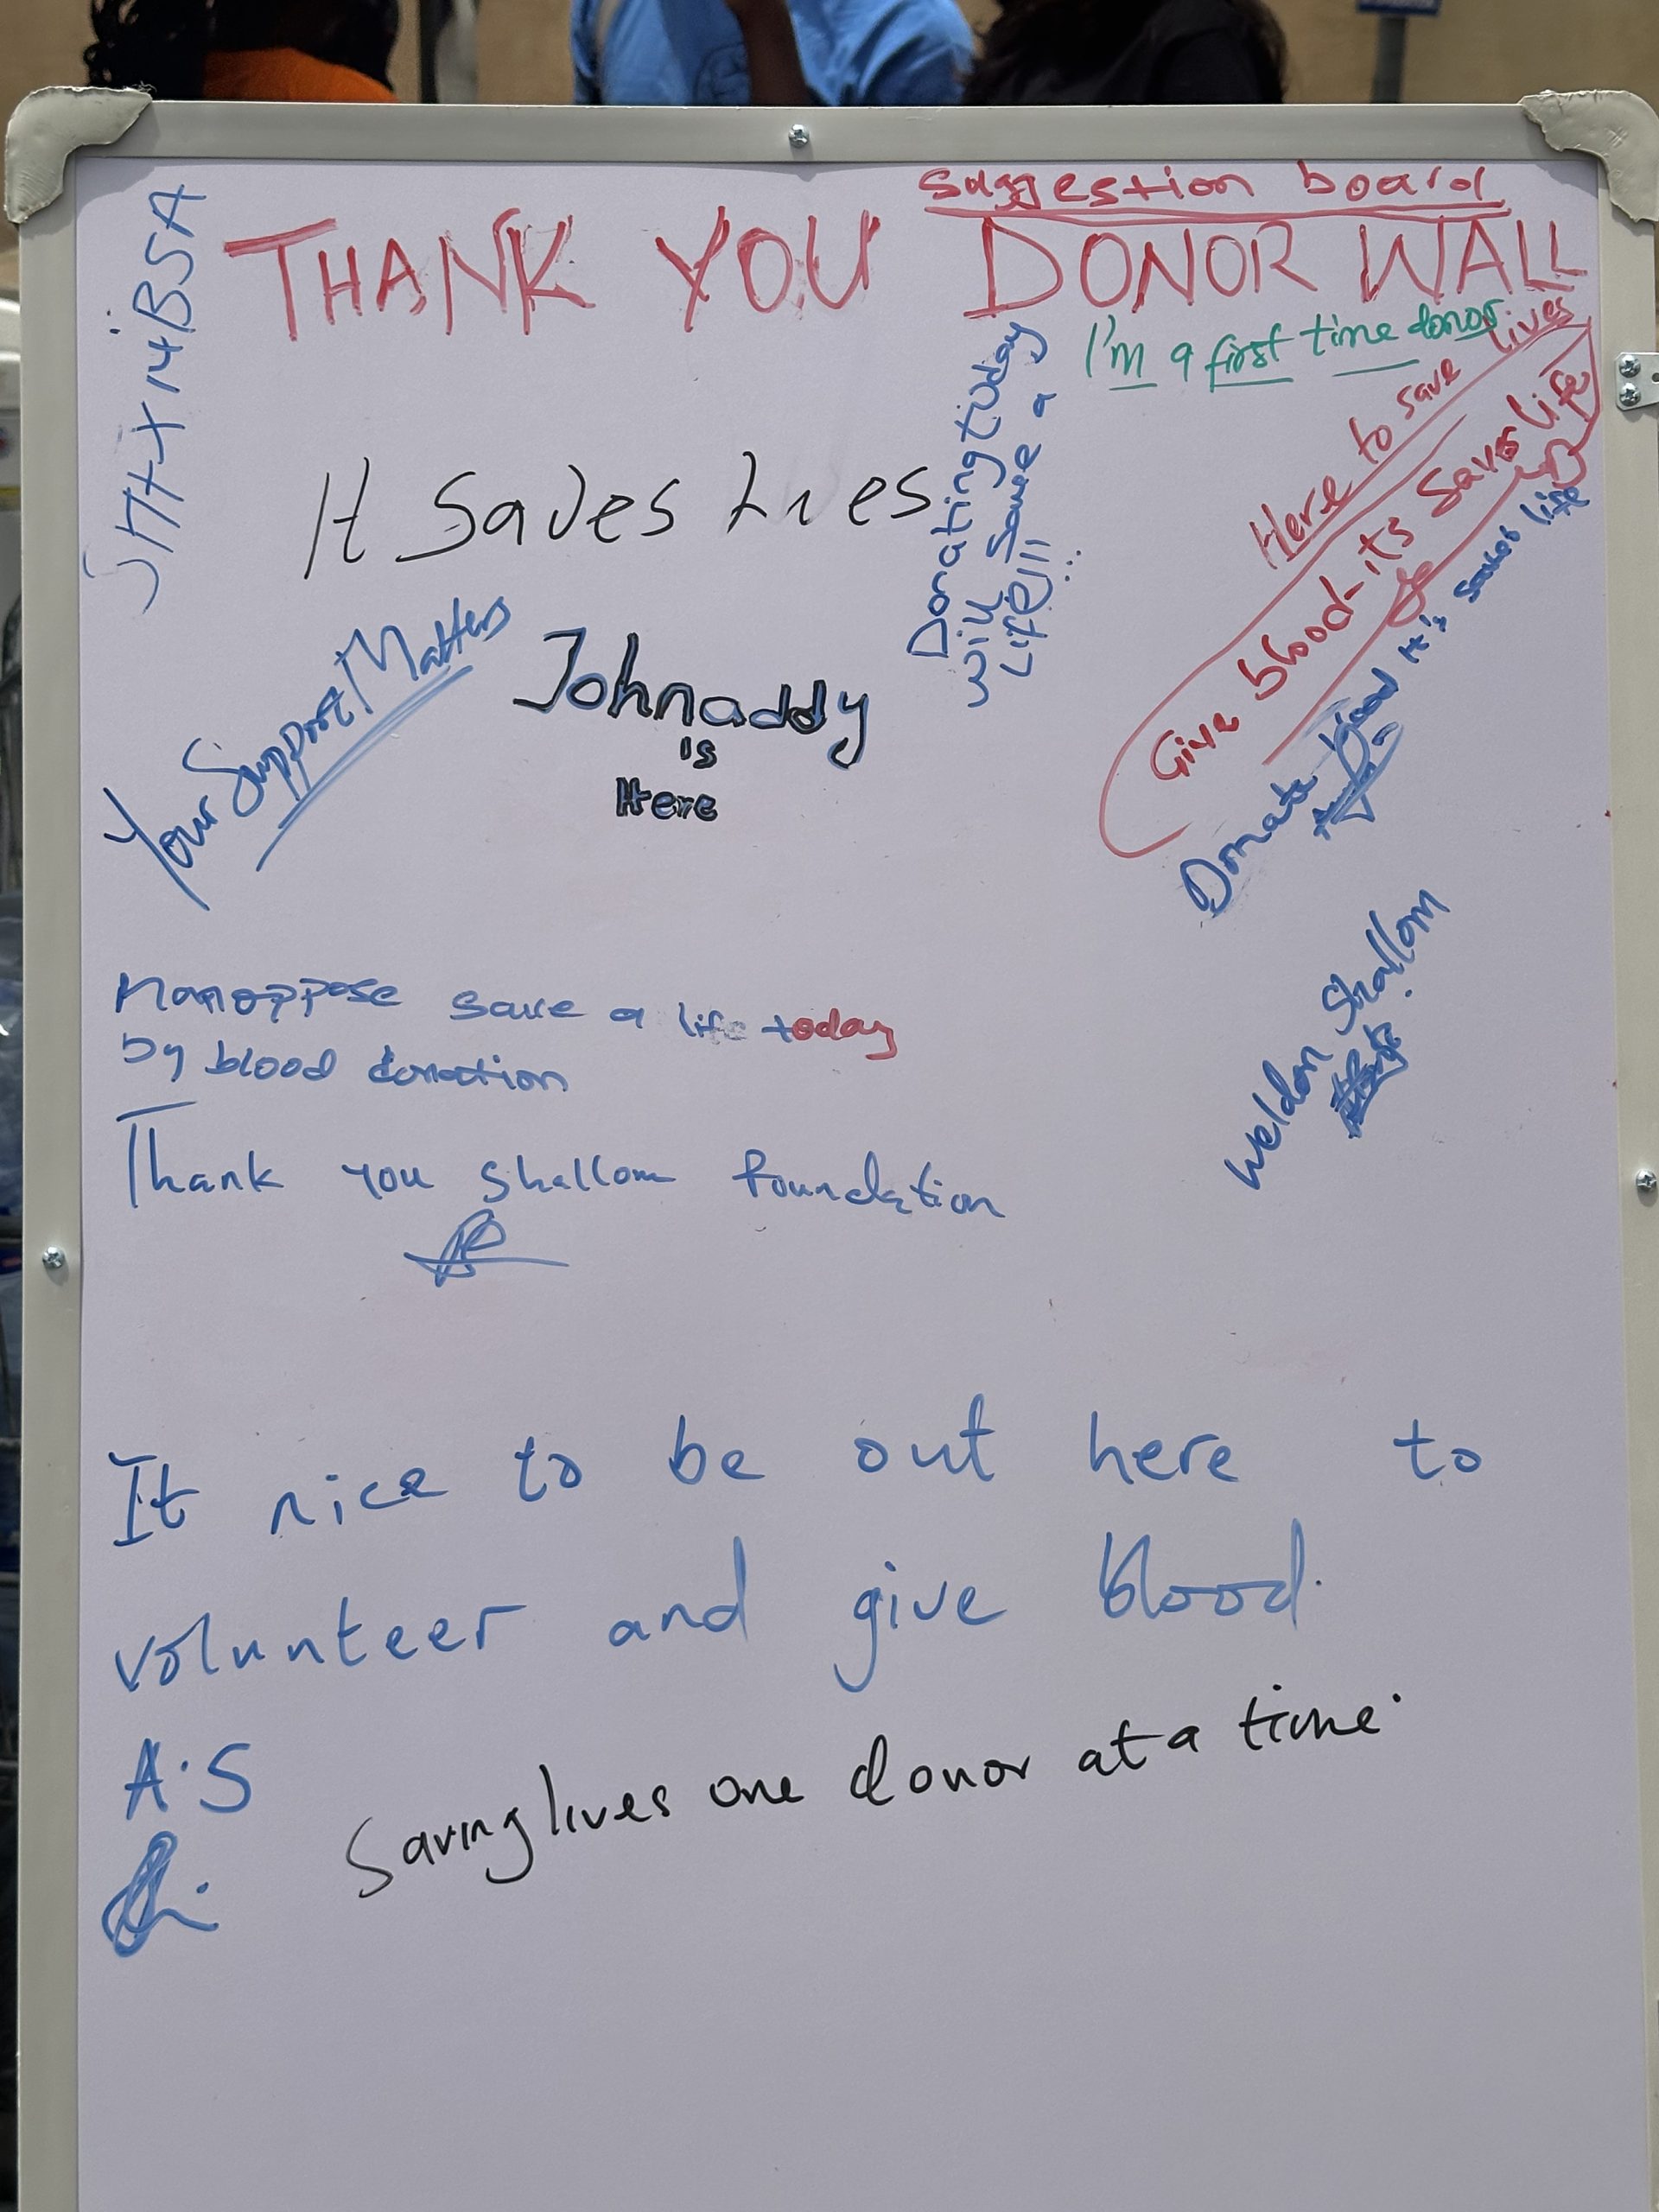 suggestion board
THANK YOU DONOR WALL
I'm a first time donor
Here to save lives
Give blood-its Saves life
Donate blood it's saves life
Donating today
will save a
Life!!!...
It Saves Lives
Your Support Matters
Johnaddy
is
Here
Weldon Shallom
save a life today
by blood donation
Thank you shallom foundation
It nice to be out here to
volunteer and give blood.
A.S
Saving lives one donor at a time.